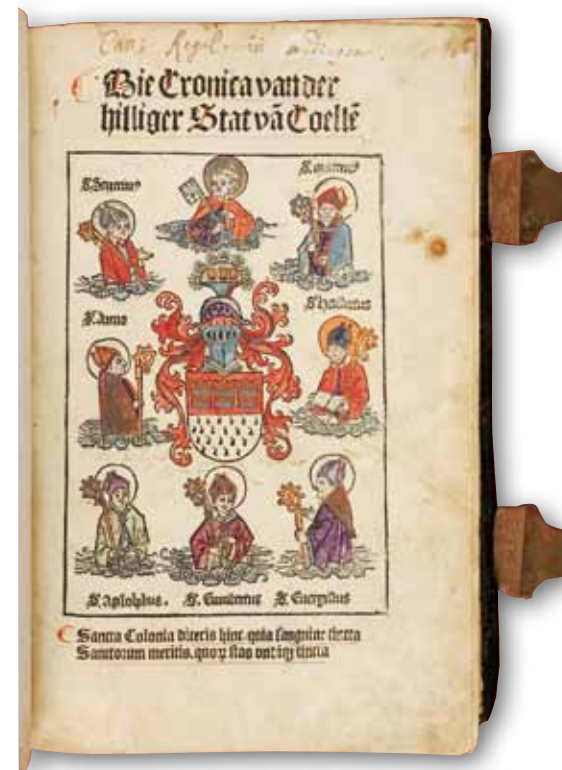 Can: Regul: in
Die Cronica van der
hilliger Stat vã Coellẽ
S. Seuerinus
S. maternus
S. Anno
S. Agilolphus. S. Cunibertus S. Euergislus
Sancta Colonia diceris hinc quia sanguine tincta
Sanctorum meritis. quorum stas vndique cincta